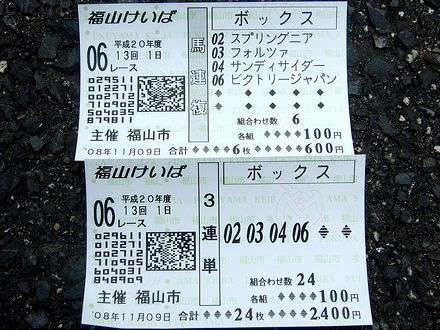 福山けいば
ボックス
06
平成20年度
13回 1日
レース
馬連複
02 スプリングニア
03 フォルツァ
04 サンディサイダー
06 ビクトリージャパン
029511
012271
002712
710902
504035
879811
組合わせ数 6
各組 ◆◆◆◆100円
主催 福山市
'08年11月09日 合計 ◆◆◆◆6枚 ◆◆◆◆600円
福山けいば
ボックス
06
平成20年度
13回 1日
レース
3連単
02 03 04 06
029611
012271
002712
710905
604031
848909
組合わせ数 24
各組 ◆◆◆◆100円
主催 福山市
'08年11月09日 合計 ◆◆◆24枚 ◆◆◆2,400円